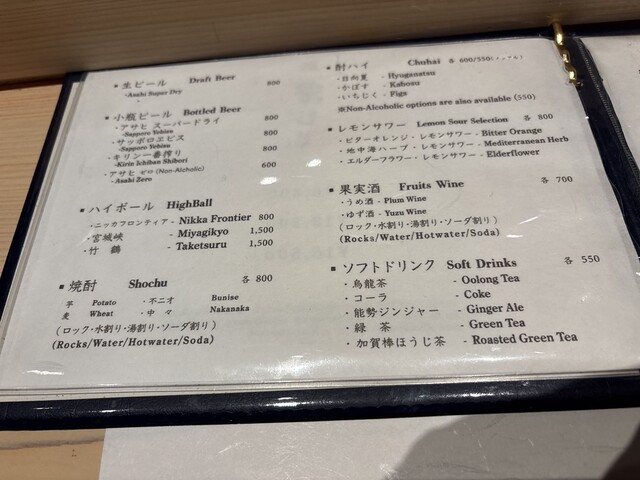 ▪ 生ビール Draft Beer 800
・Asahi Super Dry
▪ 小瓶ビール Bottled Beer
・アサヒ スーパードライ 800
-Sapporo Yebisu
・サッポロエビス 800
-Sapporo Yebisu
・キリン一番搾り 800
-Kirin Ichiban Shibori
・アサヒ ゼロ (Non-Alcholic) 600
-Asahi Zero
▪ ハイボール HighBall
・ニッカフロンティア - Nikka Frontier 800
・宮城峡 - Miyagikyo 1,500
・竹 鶴 - Taketsuru 1,500
▪ 焼酎 Shochu 各 800
芋 Potato ・不二才 Bunise
麦 Wheat ・中々 Nakanaka
(ロック・水割り・湯割り・ソーダ割り)
(Rocks/Water/Hotwater/Soda)
▪ 酎ハイ Chuhai 各 600/550(ノンアル)
・日向夏 - Hyuganatsu
・かぼす - Kabosu
・いちじく - Figs
※Non-Alcoholic options are also available (550)
▪ レモンサワー Lemon Sour Selection 各 800
・ビターオレンジ・レモンサワー - Bitter Orange
・地中海ハーブ・レモンサワー - Mediterranean Herb
・エルダーフラワー・レモンサワー - Elderflower
▪ 果実酒 Fruits Wine 各 700
・うめ酒 - Plum Wine
・ゆず酒 - Yuzu Wine
(ロック・水割り・湯割り・ソーダ割り)
(Rocks/Water/Hotwater/Soda)
▪ ソフトドリンク Soft Drinks 各 550
・烏龍茶 - Oolong Tea
・コーラ - Coke
・能勢ジンジャー - Ginger Ale
・緑 茶 - Green Tea
・加賀棒ほうじ茶 - Roasted Green Tea